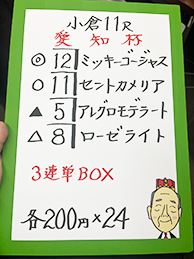 小倉11R
愛知杯
◎ 12 ミッキーゴージャス
○ 11 セントカメリア
▲ 5 アレグロモデラート
△ 8 ローゼライト
3連単BOX
各200円×24